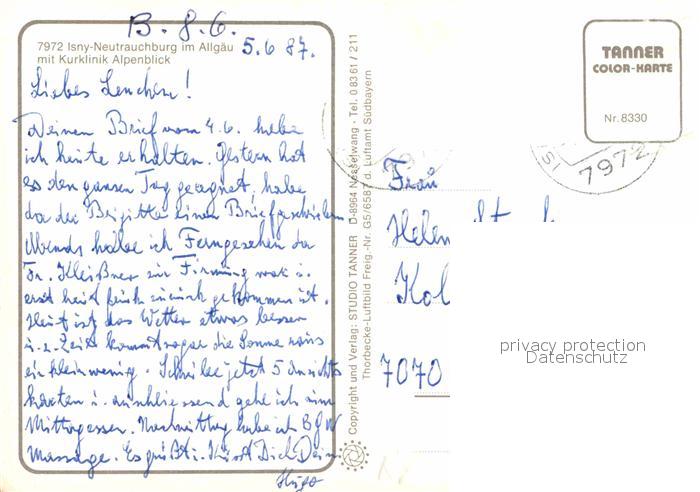 B. 8.6.
7972 Isny-Neutrauchburg im Allgäu
mit Kurklinik Alpenblick
5.6 87.
Liebes Lenchen!
Deinen Brief vom 4.6. habe
ich heute erhalten. Gestern hat
es den ganzen Tag geregnet, habe
da der Brigitte einen Brief geschrieben
Abends habe ich Ferngesehen da
Fr. Kleißner zur Firmung war u.
erst heut früh zurück gekommen ist.
Heut ist das Wetter etwas besser
u. z. Zeit kommt sogar die Sonne raus
ein klein wenig. Schreibe jetzt 5 Ansichts
karten u. anschliessend gehe ich zum
Mittagessen. Nachmittag habe ich BGW
Massage. Es grüßt u. küsst Dich Dein
Hugo
Copyright und Verlag: STUDIO TANNER D-8964 Nesselwang - Tel. 0 83 61 / 211
Thorbecke-Luftbild Freig.-Nr. G5/6587 d. Luftamt Südbayern
TANNER
COLOR-KARTE
Nr. 8330
7972
Frau
Helen
Kol
7070
privacy protection
Datenschutz